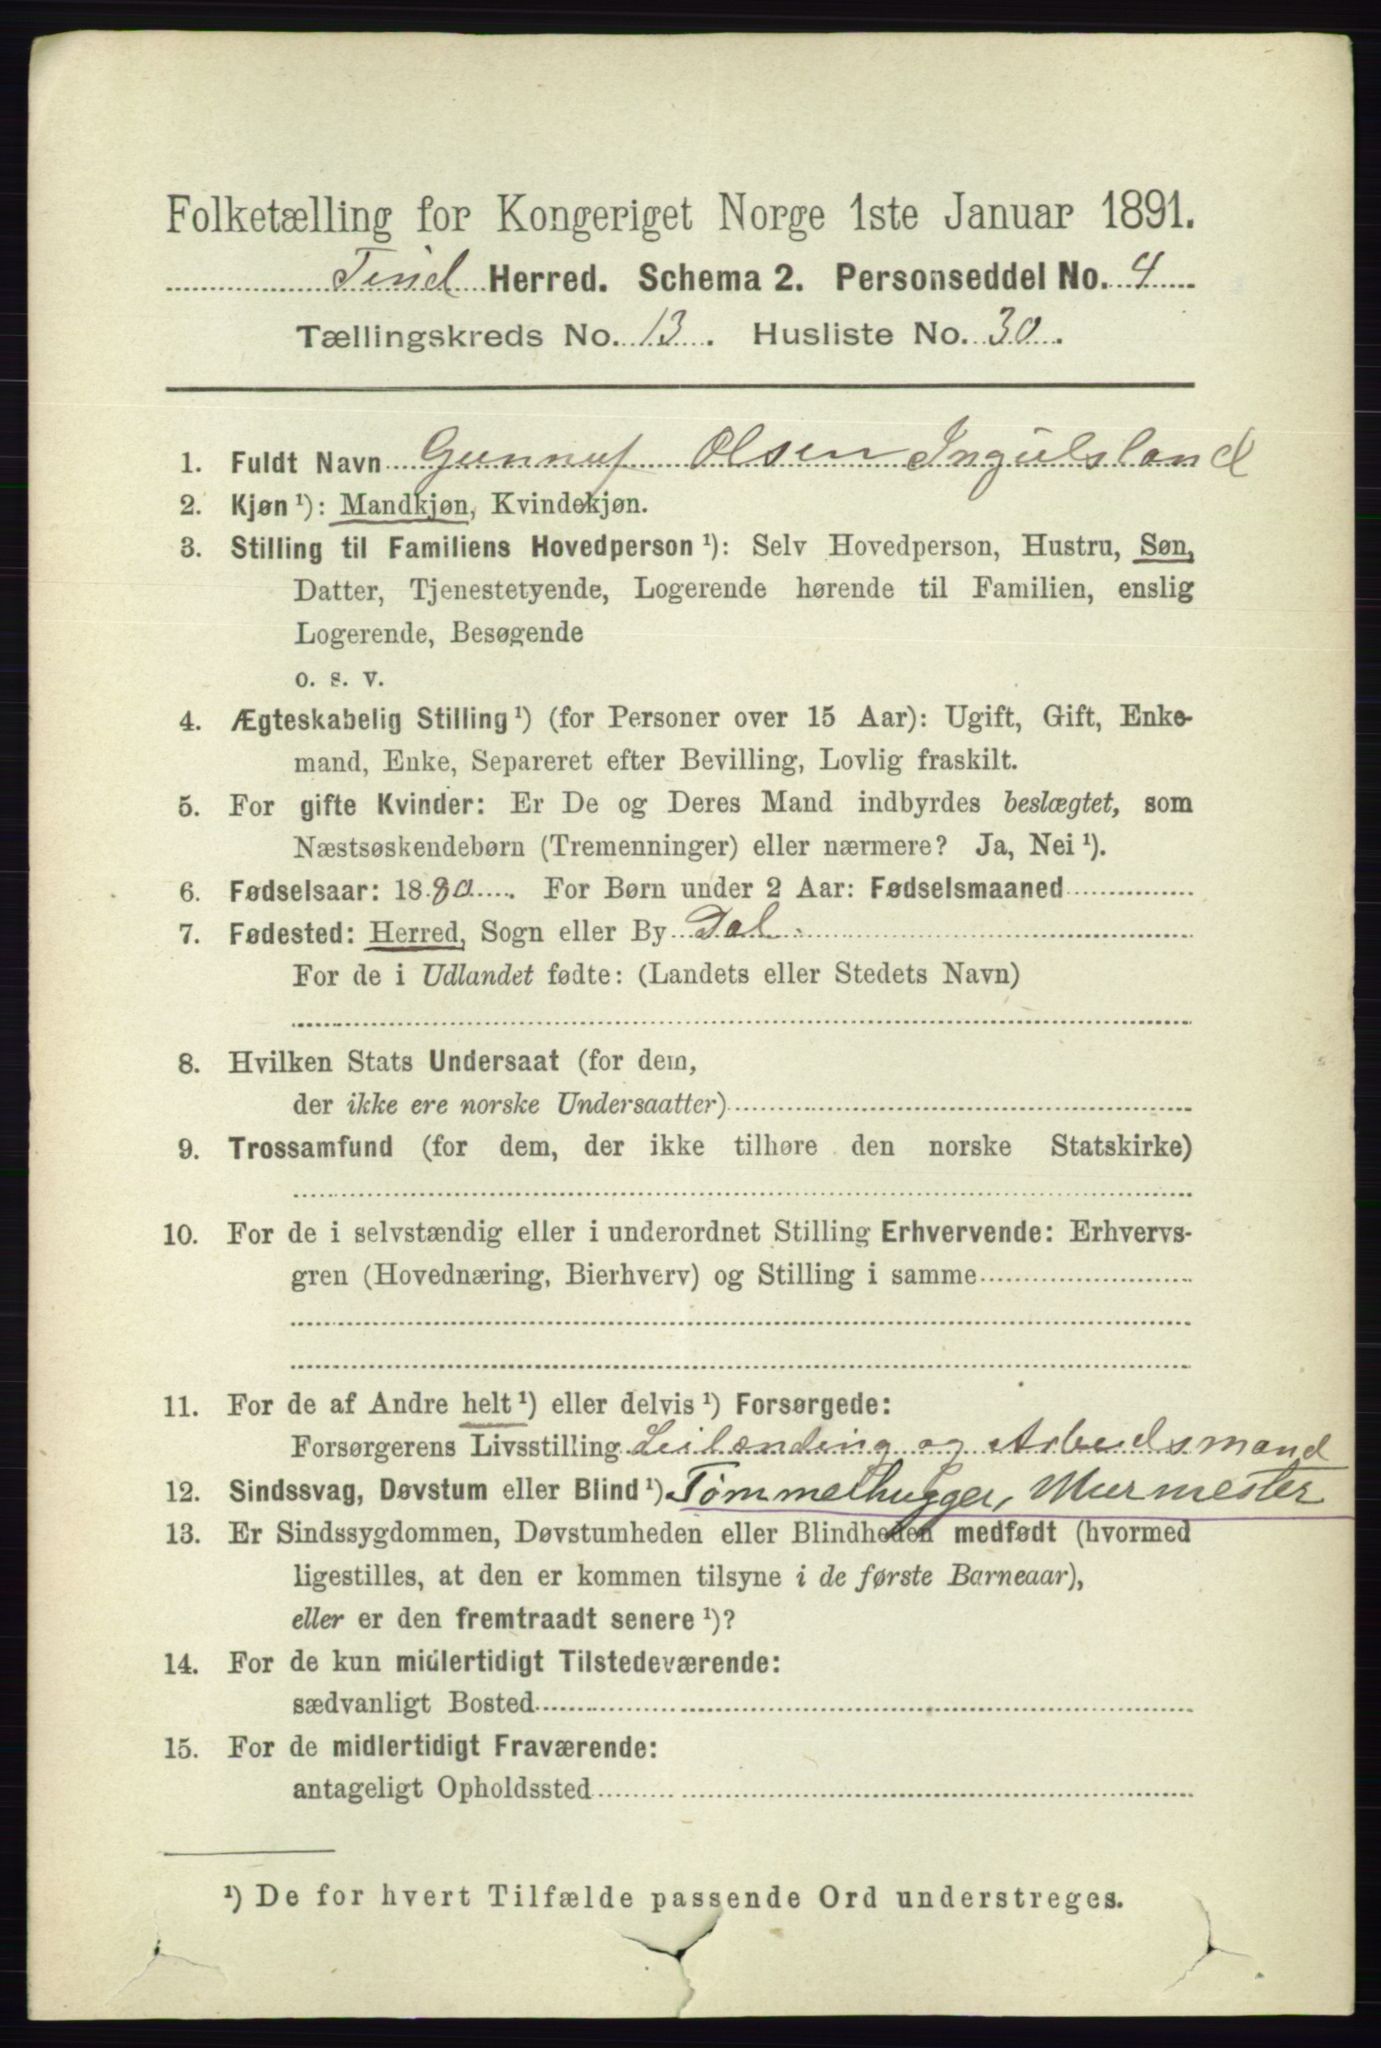 Folketælling for Kongeriget Norge 1ste Januar 1891.
Tind Herred. Schema 2. Personseddel No. 4
Tællingskreds No. 13. Husliste No. 30.
1. Fuldt Navn Gunnuf Olsen Ingulsland
2. Kjøn ¹): Mandkjøn, Kvindekjøn.
3. Stilling til Familiens Hovedperson ¹): Selv Hovedperson, Hustru, Søn,
Datter, Tjenestetyende, Logerende hørende til Familien, enslig
Logerende, Besøgende
o. s. v.
4. Ægteskabelig Stilling ¹) (for Personer over 15 Aar): Ugift, Gift, Enke-
mand, Enke, Separeret efter Bevilling, Lovlig fraskilt.
5. For gifte Kvinder: Er De og Deres Mand indbyrdes beslægtet, som
Næstsøskendebørn (Tremenninger) eller nærmere? Ja, Nei ¹).
6. Fødselsaar: 1880. For Børn under 2 Aar: Fødselsmaaned
7. Fødested: Herred, Sogn eller By Dal.
For de i Udlandet fødte: (Landets eller Stedets Navn)
8. Hvilken Stats Undersaat (for dem,
der ikke ere norske Undersaatter)
9. Trossamfund (for dem, der ikke tilhøre den norske Statskirke)
10. For de i selvstændig eller i underordnet Stilling Erhvervende: Erhvervs-
gren (Hovednæring, Bierhverv) og Stilling i samme
11. For de af Andre helt ¹) eller delvis ¹) Forsørgede:
Forsørgerens Livsstilling Leilænding og Arbeidsmand
12. Sindssvag, Døvstum eller Blind ¹) Tømmerhugger, Murmester
13. Er Sindssygdommen, Døvstumheden eller Blindheden medfødt (hvormed
ligestilles, at den er kommen tilsyne i de første Barneaar),
eller er den fremtraadt senere ¹)?
14. For de kun midlertidigt Tilstedeværende:
sædvanligt Bosted
15. For de midlertidigt Fraværende:
antageligt Opholdssted
¹) De for hvert Tilfælde passende Ord understreges.